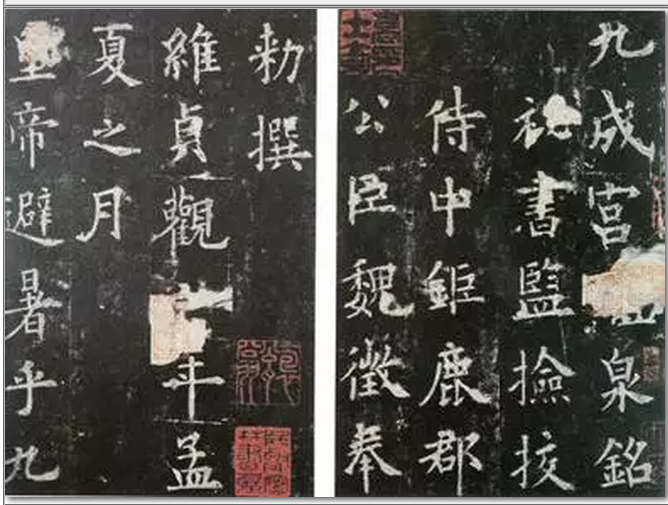 九成宮泉銘
祕書監撿挍
侍中鉅鹿郡
公臣魏徵奉
勑撰
維貞觀年孟
夏之月
皇帝避暑乎九